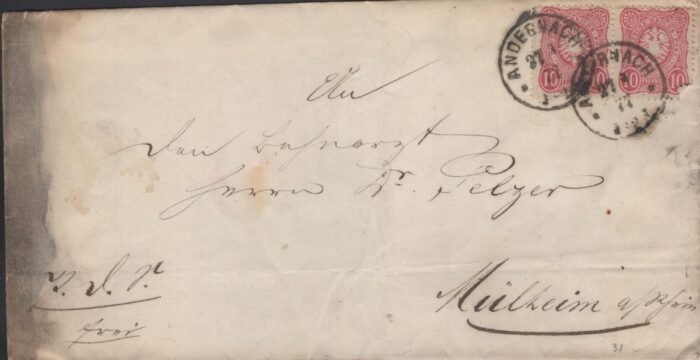 ANDERNACH
ANDERNACH
10 10 10
An
den Bahnarzt
Herrn Dr. Pelzer
frei
Mülheim a/Rhein
31